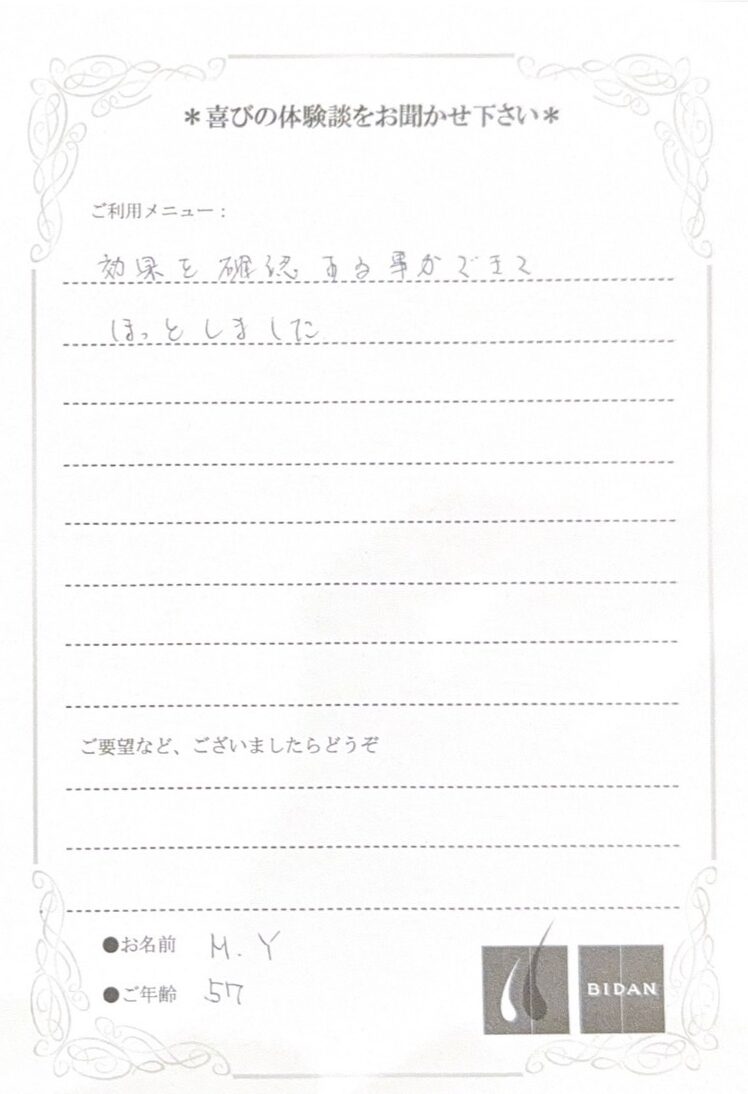 ＊喜びの体験談をお聞かせ下さい＊
ご利用メニュー：
効果を確認する事ができて
ほっとしました
ご要望など、ございましたらどうぞ
●お名前 M.Y
●ご年齢 57
BIDAN